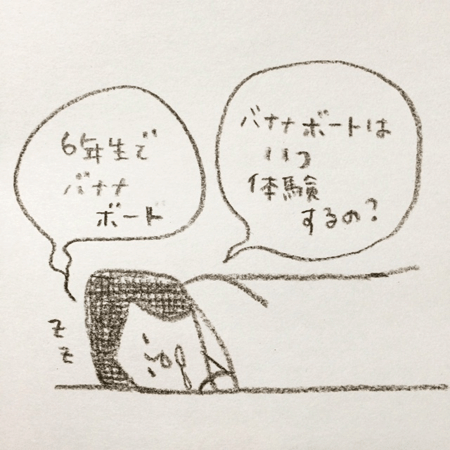 6年生で
バナナ
ボード
バナナボートは
いつ
体験
するの?
z
z